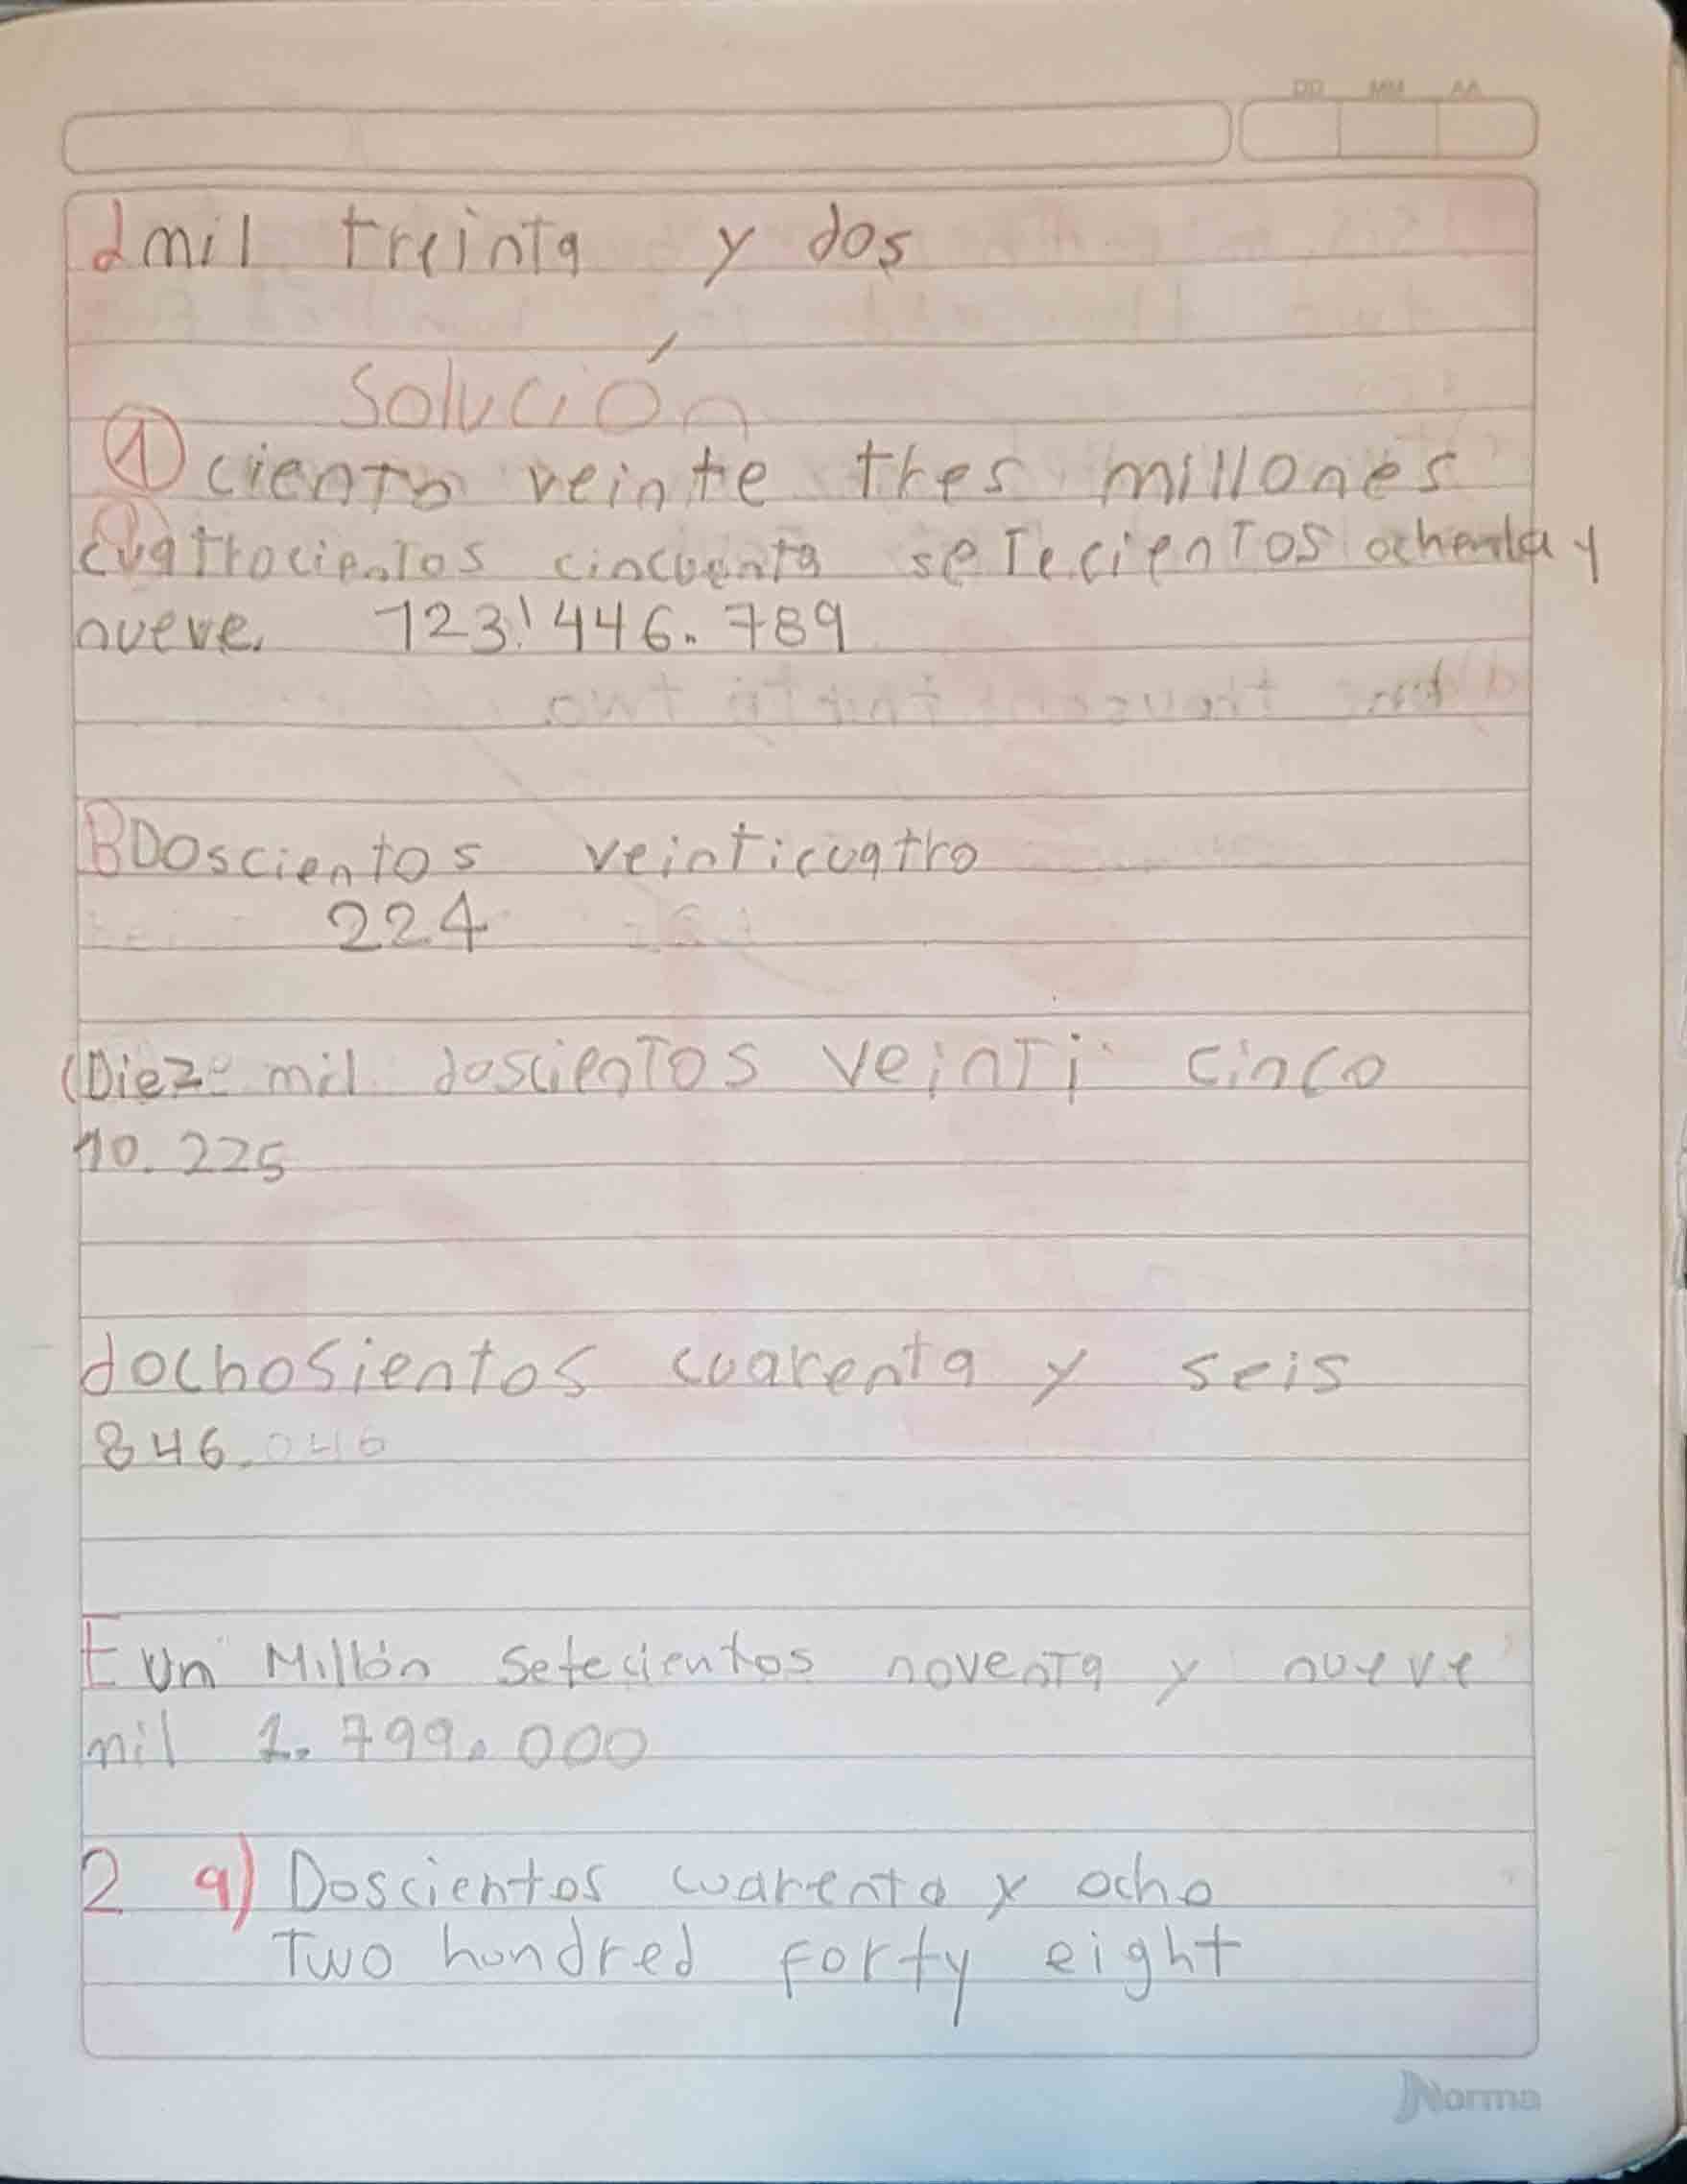 DD MM AA
d mil treinta y dos
Solución
1 ciento veinte tres millones
cuattrocientos cincuenta setecientos ochenta y
nueve. 123!446.789
B Doscientos veinticuatro
224
(Diez mil doscientos veinti cinco
10.225
d ochosientos cuarenta y seis
846.046
E un Millón setecientos noventa y nueve
mil 1.799.000
2 a) Doscientos cuarenta y ocho
Two hundred forty eight
Norma